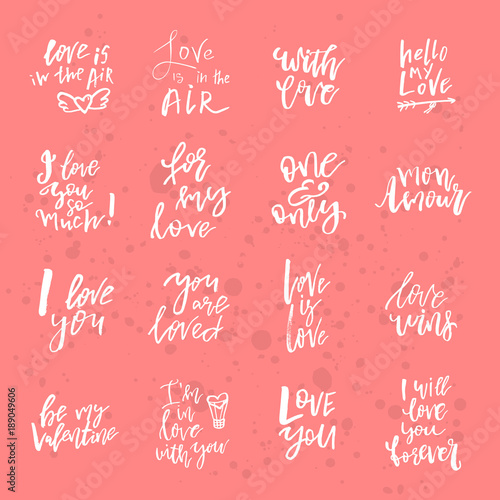 love is
in the air
Love
is in the
AIR
with
love
hello
my
Love
I love
you
so
much!
for
my
love
one
&
only
mon
Amour
I love
you
you
are
loved
Love
is
Love
love
wins
be my
Valentine
I'm
in
love
with you
Love
you
I will
love
you
forever
Adobe Stock | #189049606